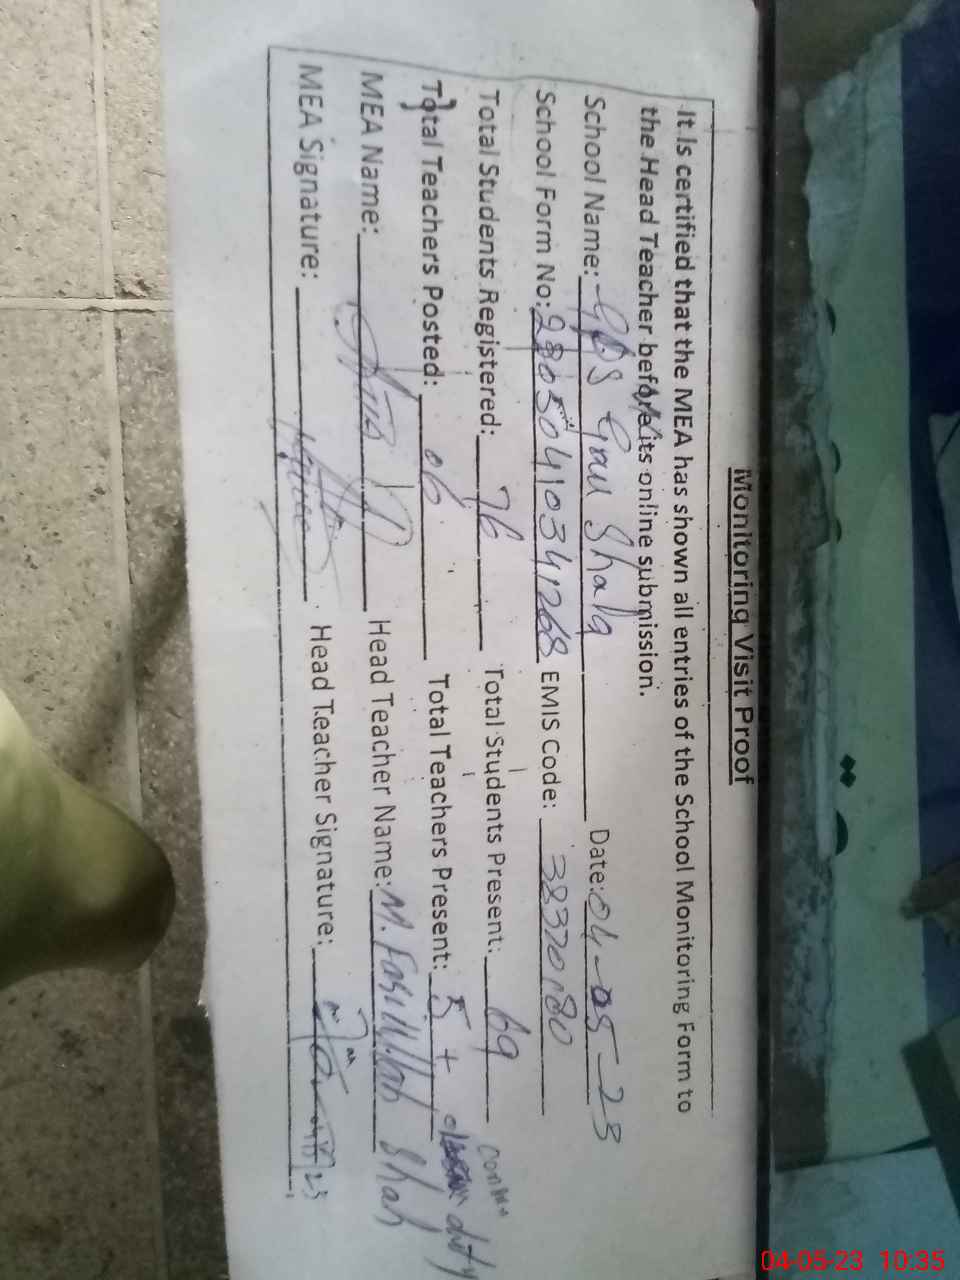 Monitoring Visit Proof
It Is certified that the MEA has shown all entries of the School Monitoring Form to
the Head Teacher before its online submission.
School Name: GPS Gau Shala Date: 04-05-23
School Form No: EMIS Code: 38320180
Total Students Registered: 76 Total Students Present: 69
Total Teachers Posted: 06 Total Teachers Present: 5 + duty
MEA Name: Head Teacher Name: M. Shah
MEA Signature: Head Teacher Signature:
04-05-23 10:35